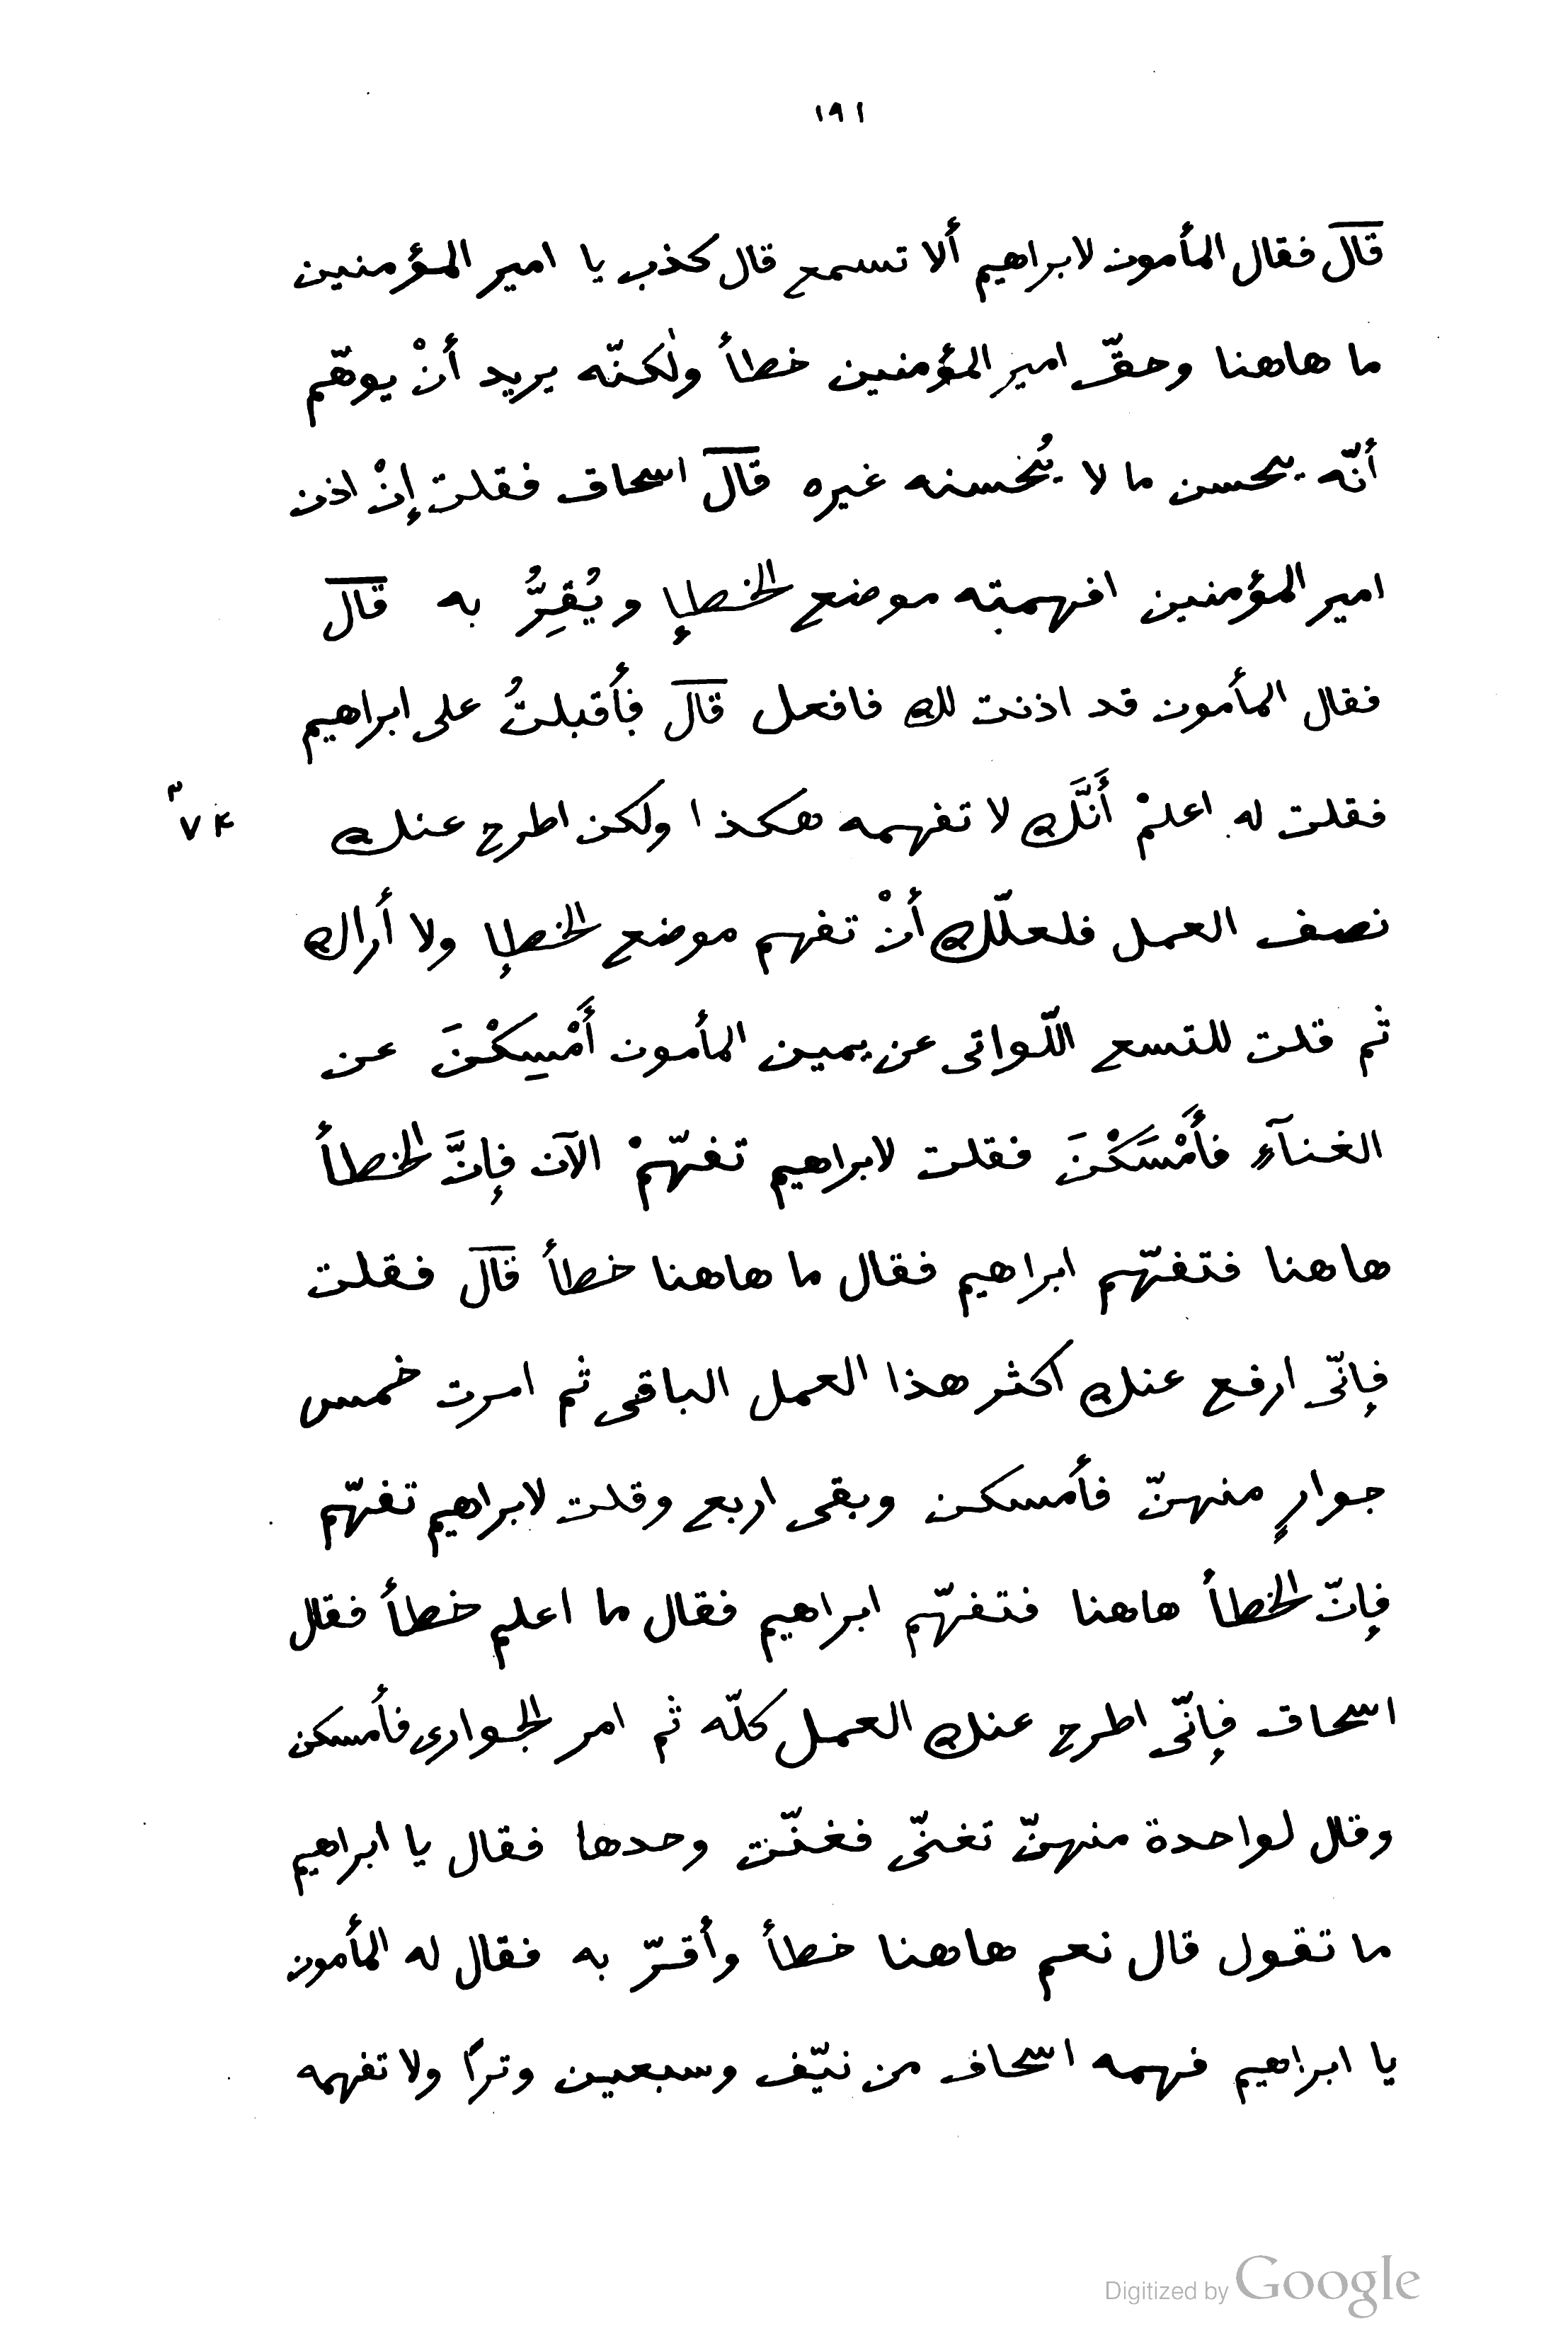 ١٩١
قال فقال المأمون لابراهيم ألا تسمع قال كذب يا امير المؤمنين
ما هاهنا وحقّ امير المؤمنين خطأ ولٰكنّه يريد أنْ يوهّم
أنّه يحسن ما لا يُحسنه غيره قال اسحاق فقلت إنْ اذن
امير المؤمنين افهمته موضع الخطإ ويُقِرُّ به قال
فقال المأمون قد اذنت لك فافعل قال فأقبلتُ على ابراهيم
فقلت له اعلمْ أَنَّك لا تفهمه هكذا ولكن اطرح عنك
نصف العمل فلعلّك أنْ تفهم موضع الخطإ ولا أراك
ثم قلت للتسع اللّواتى عن يمين المأمون أَمْسِكْنَ عن
الغنآءِ فأَمْسَكْنَ فقلت لابراهيم تفهّمْ الآن فإنَّ الخطأ
هاهنا فتفهّم ابراهيم فقال ما هاهنا خطأ قال فقلت
فإنّى ارفع عنك اكثر هذا العمل الباقى ثم امرت خمس
جوارٍ منهنّ فأمسكن وبقى اربع وقلت لابراهيم تفهّم
فإنّ الخطأ هاهنا فتفهّم ابراهيم فقال ما اعلم خطأ فقال
اسحاق فإنّى اطرح عنك العمل كلّه ثم امر الجوارى فأمسكن
وقال لواحدة منهنّ تغنّى فغنّت وحدها فقال يا ابراهيم
ما تقول قال نعم هاهنا خطأ وأقرّ به فقال له المأمون
يا ابراهيم فهمه اسحاق من نيّف وسبعين وترًا ولا تفهمه
Digitized by Google